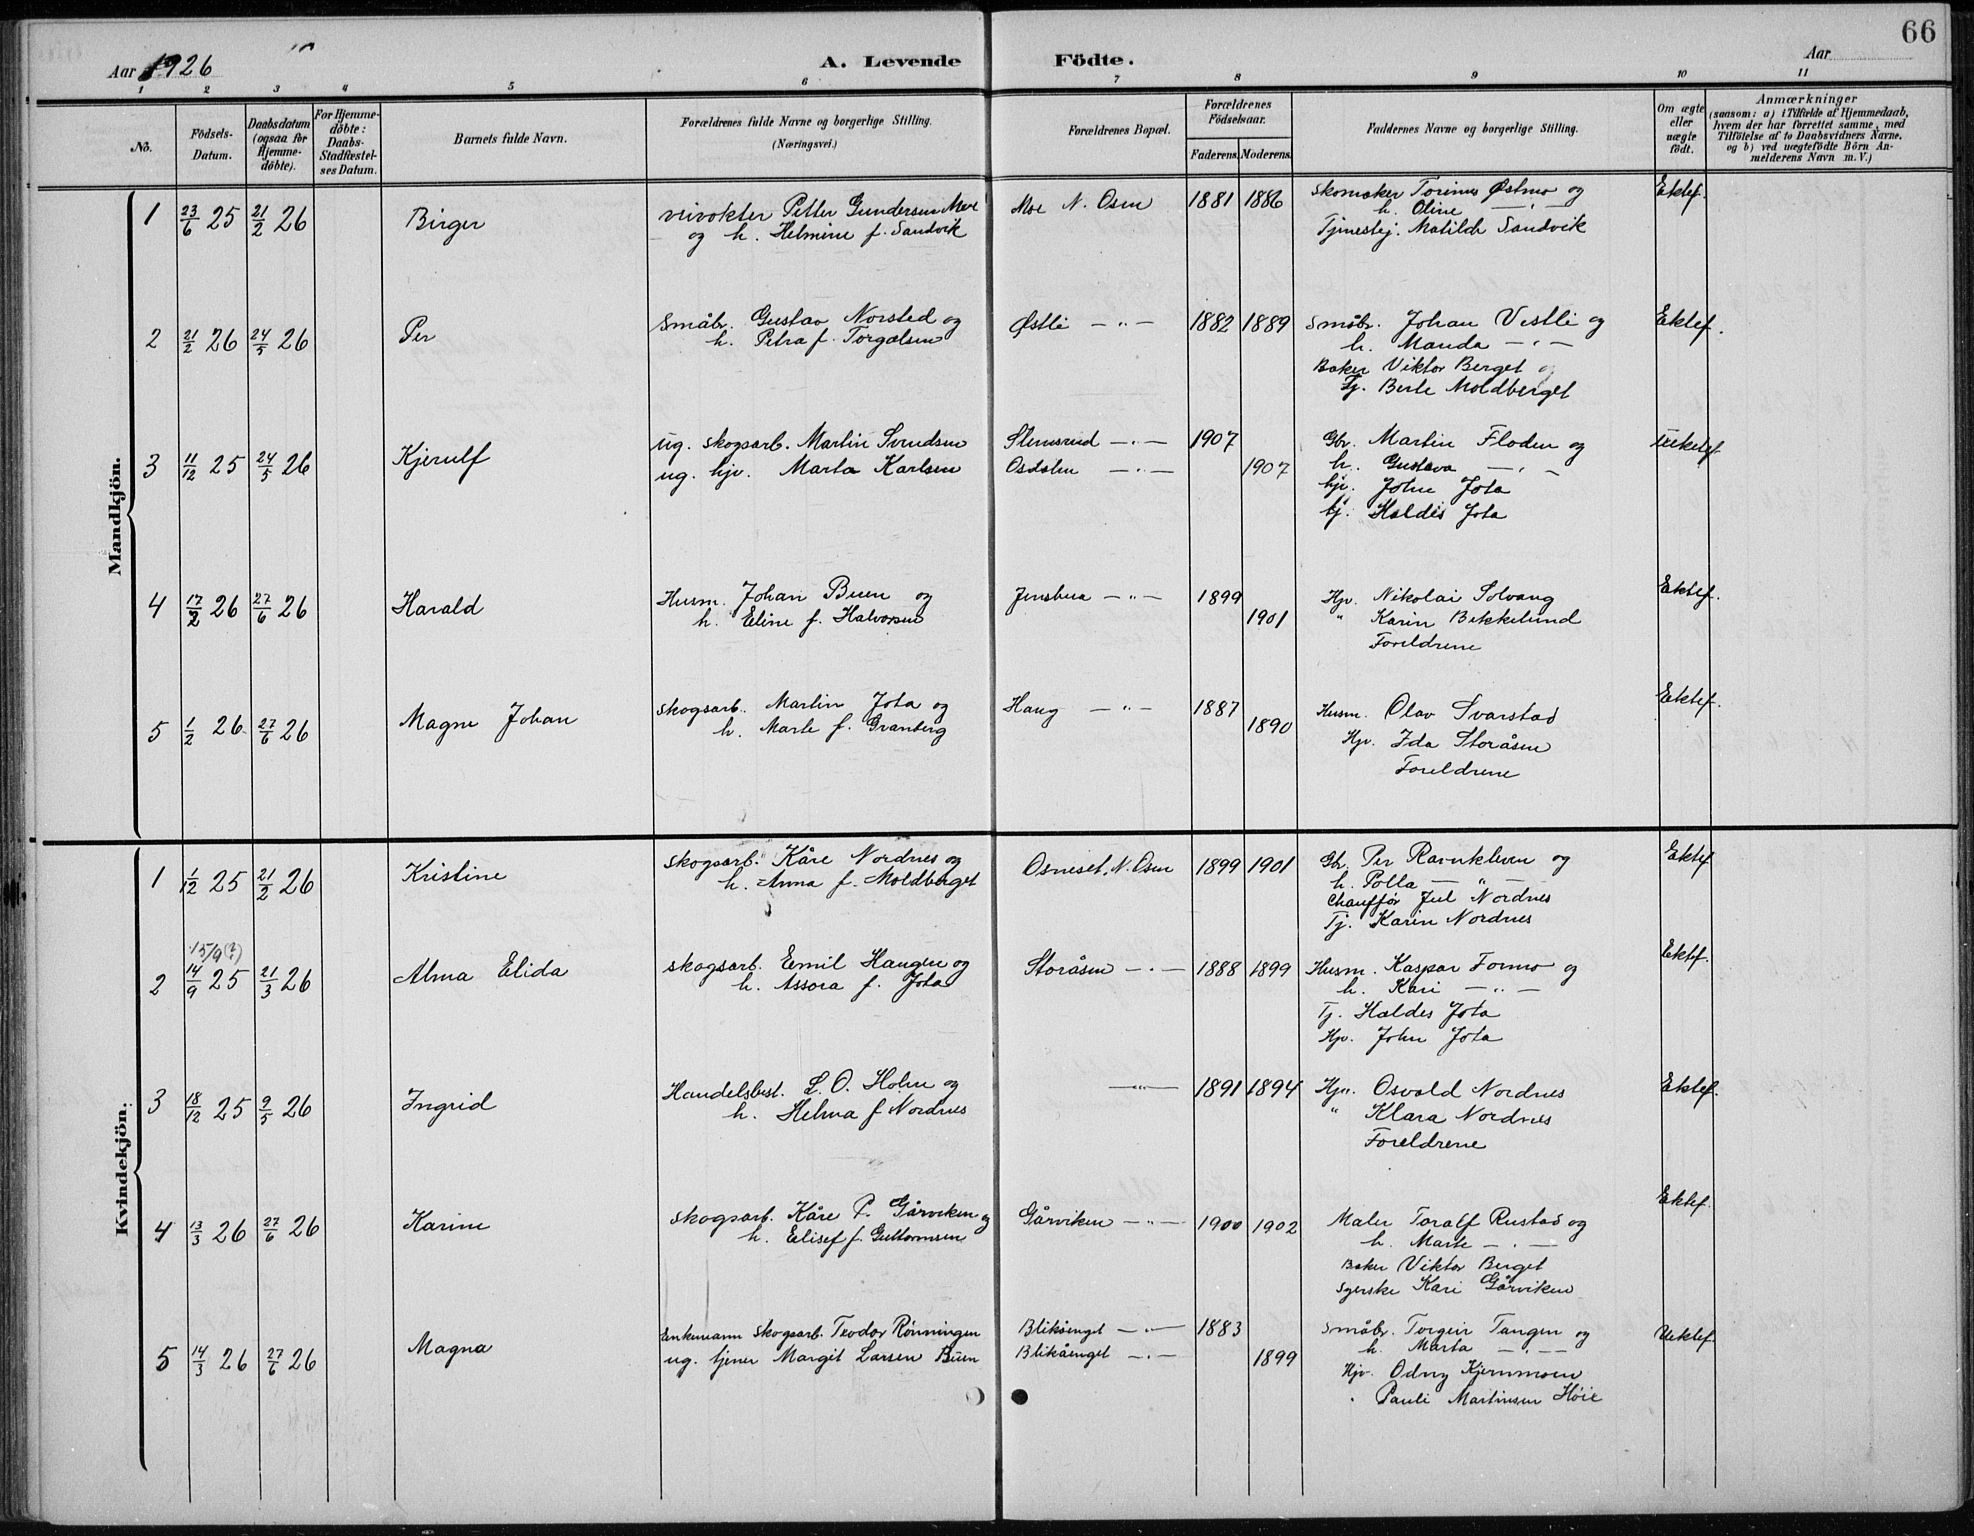 66
Aar 1926
A. Levende Födte.
Aar
1 2 3 4 5 6 7 8 9 10 11
No.
Födsels-
Datum.
Daabsdatum
(ogsaa for
Hjemme-
döbte).
For Hjemme-
döbte:
Daabs-
Stadfæstel-
ses Datum.
Barnets fulde Navn.
Forældrenes fulde Navne og borgerlige Stilling.
(Næringsvei.)
Forældrenes Bopæl.
Forældrenes
Födselsaar.
Faderens. Moderens.
Faddernes Navne og borgerlige Stilling.
Om ægte
eller
uægte
født.
Anmærkninger
(saasom: a) i Tilfælde af Hjemmedaab,
hvem der har forrettet samme, med
Tilföielse af to Daabsvidners Navne,
og b) ved uægtefödte Börn An-
melderens Navn m. V.)
Mandkjön.
1 23/6 25 21/2 26 Birger
veivokter Petter Gundersen Moe
og h. Helmine f. Sandvik
Moe N. Osen 1881 1886
Skomaker Torinus Østmo og
h. Oline — " —
Tjenestej. Matilde Sandvik
Ektef.
2 21/2 26 24/5 26 Per
Småbr. Gustav Norsted og
h. Petra f. Torgalsen
Østli — " — 1882 1889
Småbr. Johan Vestli og
h. Manda — " —
Baker Viktor Berget og
Tj. Berte Moldberget
Ektef.
3 11/12 25 24/5 26 Kjerulf
ug. skogsarb. Martin Svendsen
ug. hjv. Marta Karlsen
Stensrud — " — 1907
Osdalen — " — 1907
Gbr. Martin Floden og
h. Gustava — " —
hjv. John Jota
tj. Haldis Jota
Uektef.
4 17/2 26 27/6 26 Harald
Husm. Johan Buen og
h. Eline f. Halvorsen
Jensbua — " — 1899
1901
Hjv. Nikolai Solvang
" Karin Bekkelund
Foreldrene
Ektef.
5 1/2 26 27/6 26 Magne Johan
Skogsarb. Martin Jota og
h. Marte f. Granberg
Haug — " — 1887
1890
Husm. Olav Svarstad
Hjv. Ida Storåsen
Foreldrene
Ektef.
Kvindekjön.
1 1/12 25 21/2 26 Kristine
Skogsarb. Kåre Nordnes og
h. Anna f. Moldberget
Osneset, N. Osen 1899 1901
Gbr. Per Ravnkleven og
h. Polla — " —
Chauffør Jul Nordnes
Tj. Karin Nordnes
Ektef.
15/9(?)
2 14/9 25 21/3 26 Alma Elida
Skogsarb. Emil Haugen og
h. Assora f. Jota
Storåsen — " — 1888 1899
Husm. Kaspar Formo og
h. Kari — " —
Tj. Haldes Jota
Hjv. John Jota
Ektef.
3 18/12 25 9/5 26 Ingrid
Handelsbest. L. O. Holm og
h. Helma f Nordnes
— " — 1891 1894
Hjv. Osvald Nordnes
" Klara Nordnes
Foreldrene
Ektef.
4 13/3 26 27/6 26 Karine
Skogsarb. Kåre P. Gårviken og
h. Elisef f. Guttormsen
Gårviken — " — 1900 1902
Maler Toralf Rustad og
h. Marte — " —
Baker Viktor Berget
Syerske Kari Gårviken
Ektef.
5 14/3 26 27/6 26 Magna
Enkemann Skogsarb. Teodor Rønningen
ug. tjener Margit Larsen Buen
Blikåenget — " — 1883
Blikåenget — " — 1899
Småbr. Torgeir Tangen og
h. Marta — " —
Hjv. Odny Kjernmoen
" Pauli Martinsen Høie
Uektef.